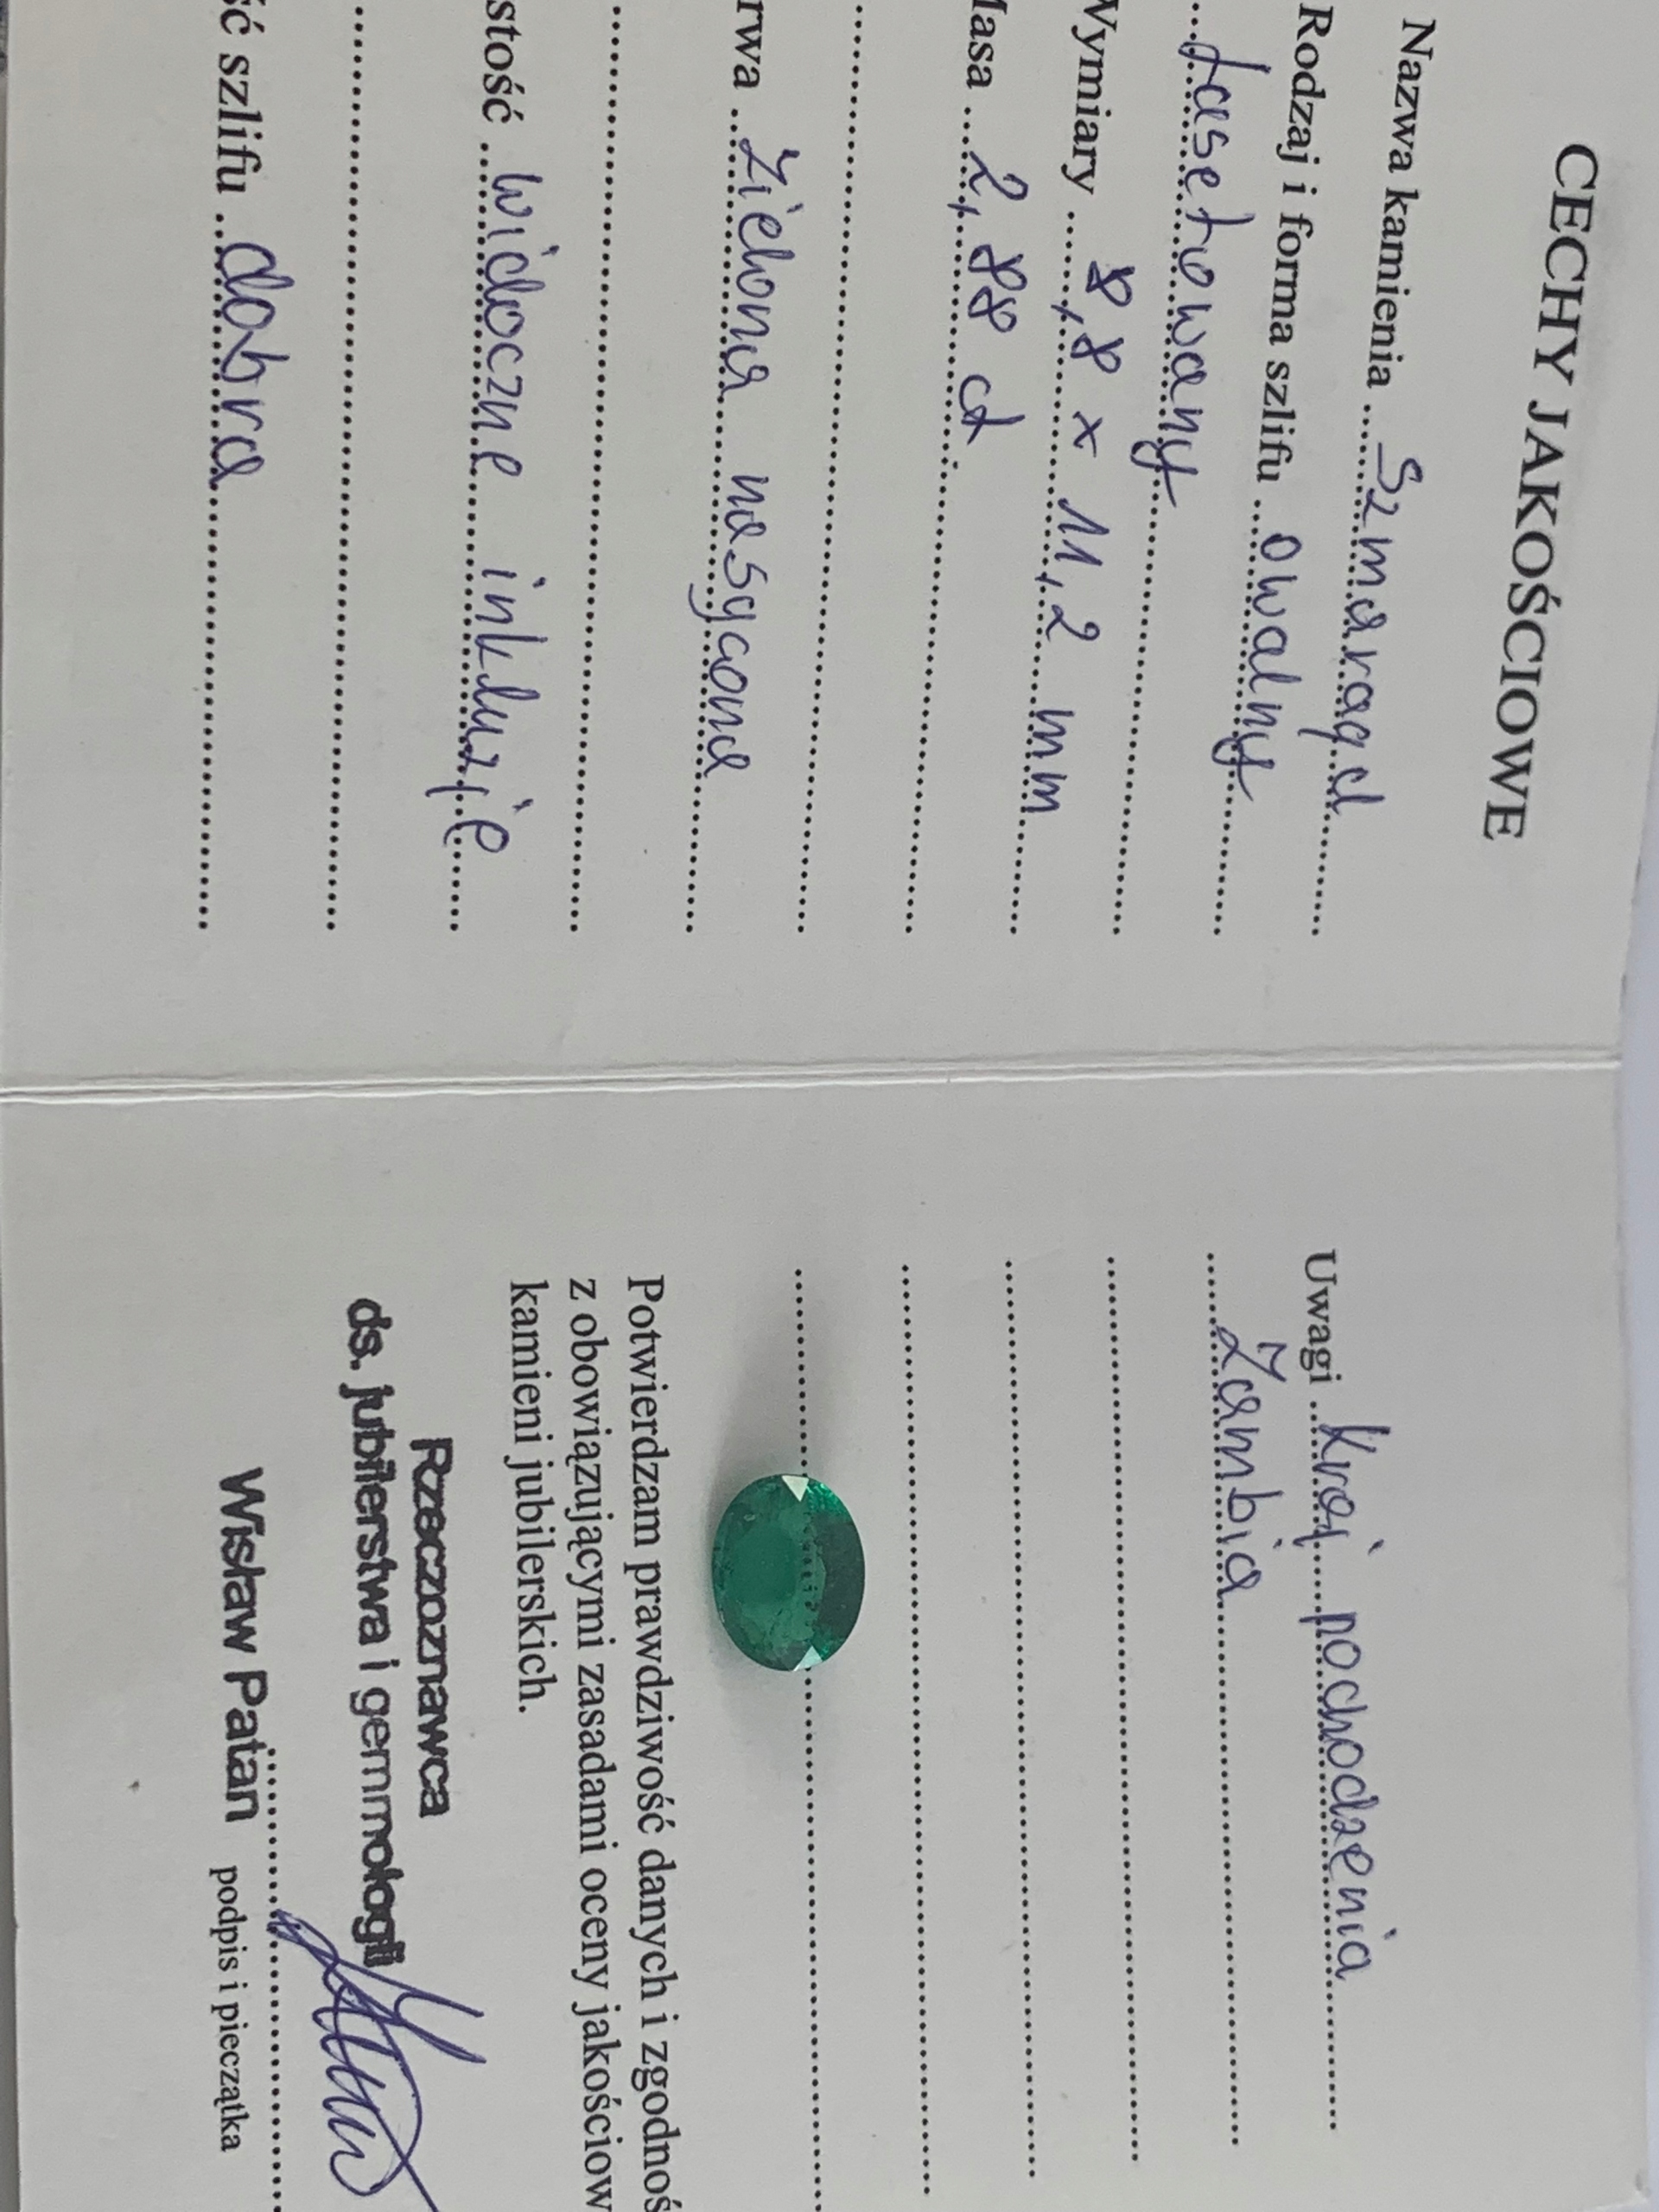 CECHY JAKOŚCIOWE
Nazwa kamienia ...Szmaragd...
Rodzaj i forma szlifu ...owalny...
...fasetowany...
Wymiary ...8,8 x 11,2 mm...
Masa ...2,88 ct...
rwa ...zielona nasycona...
stość ...widoczne inkluzje...
ść szlifu ...dobra...
Uwagi ...Kraj pochodzenia...
...Zambia...
Potwierdzam prawdziwość danych i zgodnoś
z obowiązującymi zasadami oceny jakościow
kamieni jubilerskich.
Rzeczoznawca
ds. jubilerstwa i gemmologii
Wisław Patan
podpis i pieczątka